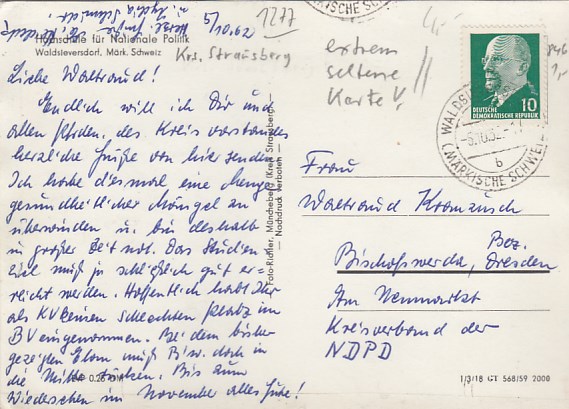 5/10.62
1277
Hochschule für Nationale Politik
Waldsieversdorf, Märk. Schweiz
Krs. Strausberg
extrem
seltene
Karte!
DEUTSCHE
DEMOKRATISCHE REPUBLIK
10
(MÄRKISCHE SCHWEIZ)
b
Liebe Waltraud!
Endlich will ich Dir und
allen des Kreisvorstandes
herzliche Grüße von hier senden.
Ich habe diesmal eine Menge
gesundheitlicher Mängel zu
überwinden u. bin deshalb
in großer Zeitnot. Das Studien-
ziel muß ja schließlich gut er-
reicht werden. Hoffentlich habt Ihr
als KV keinen schlechten Platz im
BV eingenommen. Bei dem bisher
gezeigten Elan muß Biw. doch in
die Mitte rücken. Bis zum
Wiedersehen im November alles Gute!
Foto-Richter, Müncheberg (Kreis Strausberg)
— Nachdruck verboten —
Frau
Waltraud
Bischofswerda, Bez. Dresden
Am Neumarkt
Kreisverband der
NDPD
1/3/18 GT 568/59 2000